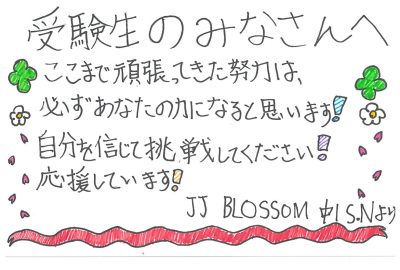 受験生のみなさんへ
ここまで頑張ってきた努力は、
必ずあなたの力になると思います!
自分を信じて挑戦してください!
応援しています!
JJ BLOSSOM 中1 S.Nより